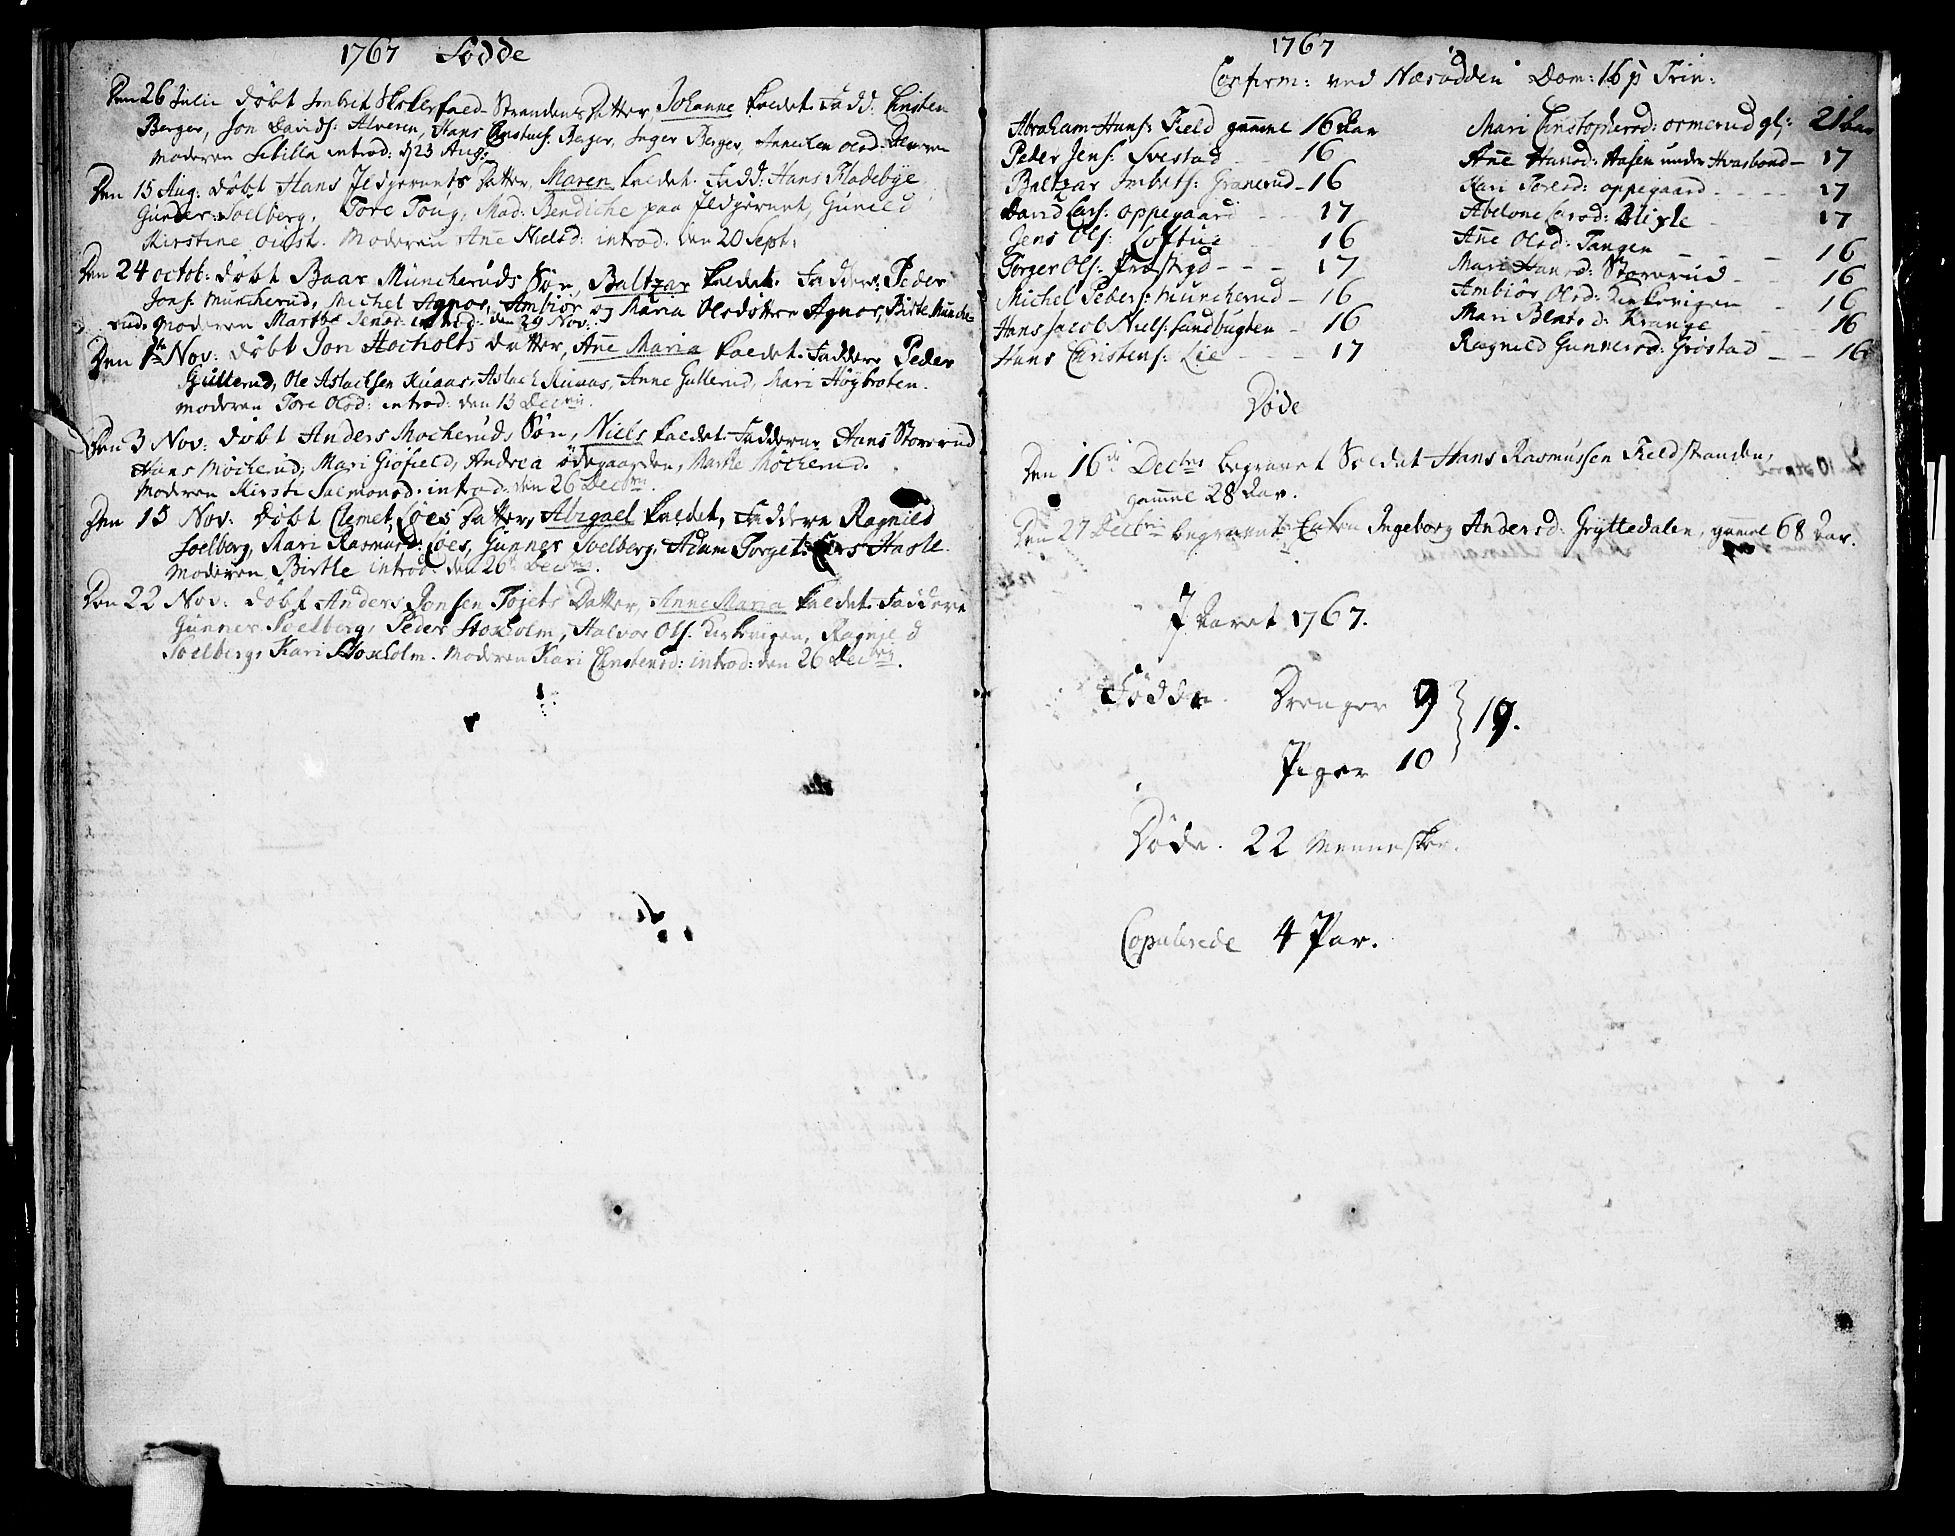 1767 Fødde
Den 26 Julii døbt Imbrit Skokerfald Strandens Datter, Johanne kaldet. Fadd: Christen
Berger, Jon Davids: Alveren, Hans Christens: Berger, Inger Berger, Anne Olsd:
Moderen Sibilla introd: d 23 Aug:
Den 15 Aug: døbt Hans Ildjerunts Datter, Maren kaldet. Fadd: Hans Fladebye
Gunder Solberg, Tore Toug, Mad: Bendiche paa Ildjerunt, Gunild
Kirstine Moderen Anne Nielsd: introd: den 20 Sept:
Den 24 octob: døbt Baar Müncheruds Søn, Baltzar kaldet. Faddere: Peder
Jons: Müncherud, Michel Agnor, Ambiør og Maria Olsdøttre Agnor, Birte Münche-
rud. Moderen Marthe Jensd: introd: den 29 Nov:
Den 1ste Nov: døbt Jon Hocholts datter, Anne Maria kaldet. Faddere Peder
Gullerud, Ole Aslachsen Ruaas, Aslach Ruaas, Anne Gullerud, Mari Høybroten.
Moderen Tore Olsd: introd: den 13 Decbris.
Den 3 Nov: døbt Anders Mocheruds Søn, Niels kaldet. Fadderne Hans Storerud
Hans Mocherud, Mari Giøfield, Andrea ødegaarden, Marthe Mocherud.
Moderen Kirsti Salmonsd: introd: den 26 Decbris.
Den 15 Nov: døbt Clemet Loes Datter, Abigael kaldet, Faddere Ragnild
Soelberg, Mari Rasmusd: Loes, Gunner Soelberg, Adam Torget, Lars Hasle.
Moderen Birthe introd: den 26 Decbris.
Den 22 Nov: døbt Anders Jonsen Tojets Datter, Anne Maria kaldet. Faddere
Gunner Soelberg, Peder Stoxholm, Halvor Ols: Kirkevigen, Ragnild
Soelberg, Kari Stoxholm. Moderen Kari Christensd: introd: den 26 Decbris.
1767
Confirm: ved Næsodden Dom: 16 p Trin:
Abraham Hans: Field gammel 16 Aar
Peder Jens: Svestad 16
Baltzar Imbrits: Granerud 16
David Lars: Oppegaard 17
Jens Ols: Loftue 16
Torger Ols: Præstegd 17
Michel Peders: Müncherud 16
Hans Jacob Niels: Sandbugten 16
Hans Christens: Lie 17
Mari Christophersd: Ormerud gl: 21 Aar
Anne Hansd: Hasen under Hvasbond 17
Kari Toresd: Oppegaard 17
Abelone Larsd: Blixle 17
Anne Olsd: Tangen 16
Mari Hansd: Storerud 16
Ambiør Olsd: Kirkevigen 16
Mari Bentsd: Krange 16
Ragnild Gunnersd: Grøstad 16
Døde
Den 16de Decbris begravet Soldat Hans Rasmussen Fieldstranden,
gammel 28 Aar.
Den 27 Decbris begravet Enken Ingeborg Andersd: Gryttedalen, gammel 68 Aar.
J Aaret 1767.
Fødde. Drenger 9
19.
Piger 10
Døde. 22 Mennesker.
Copulerede 4 Par.